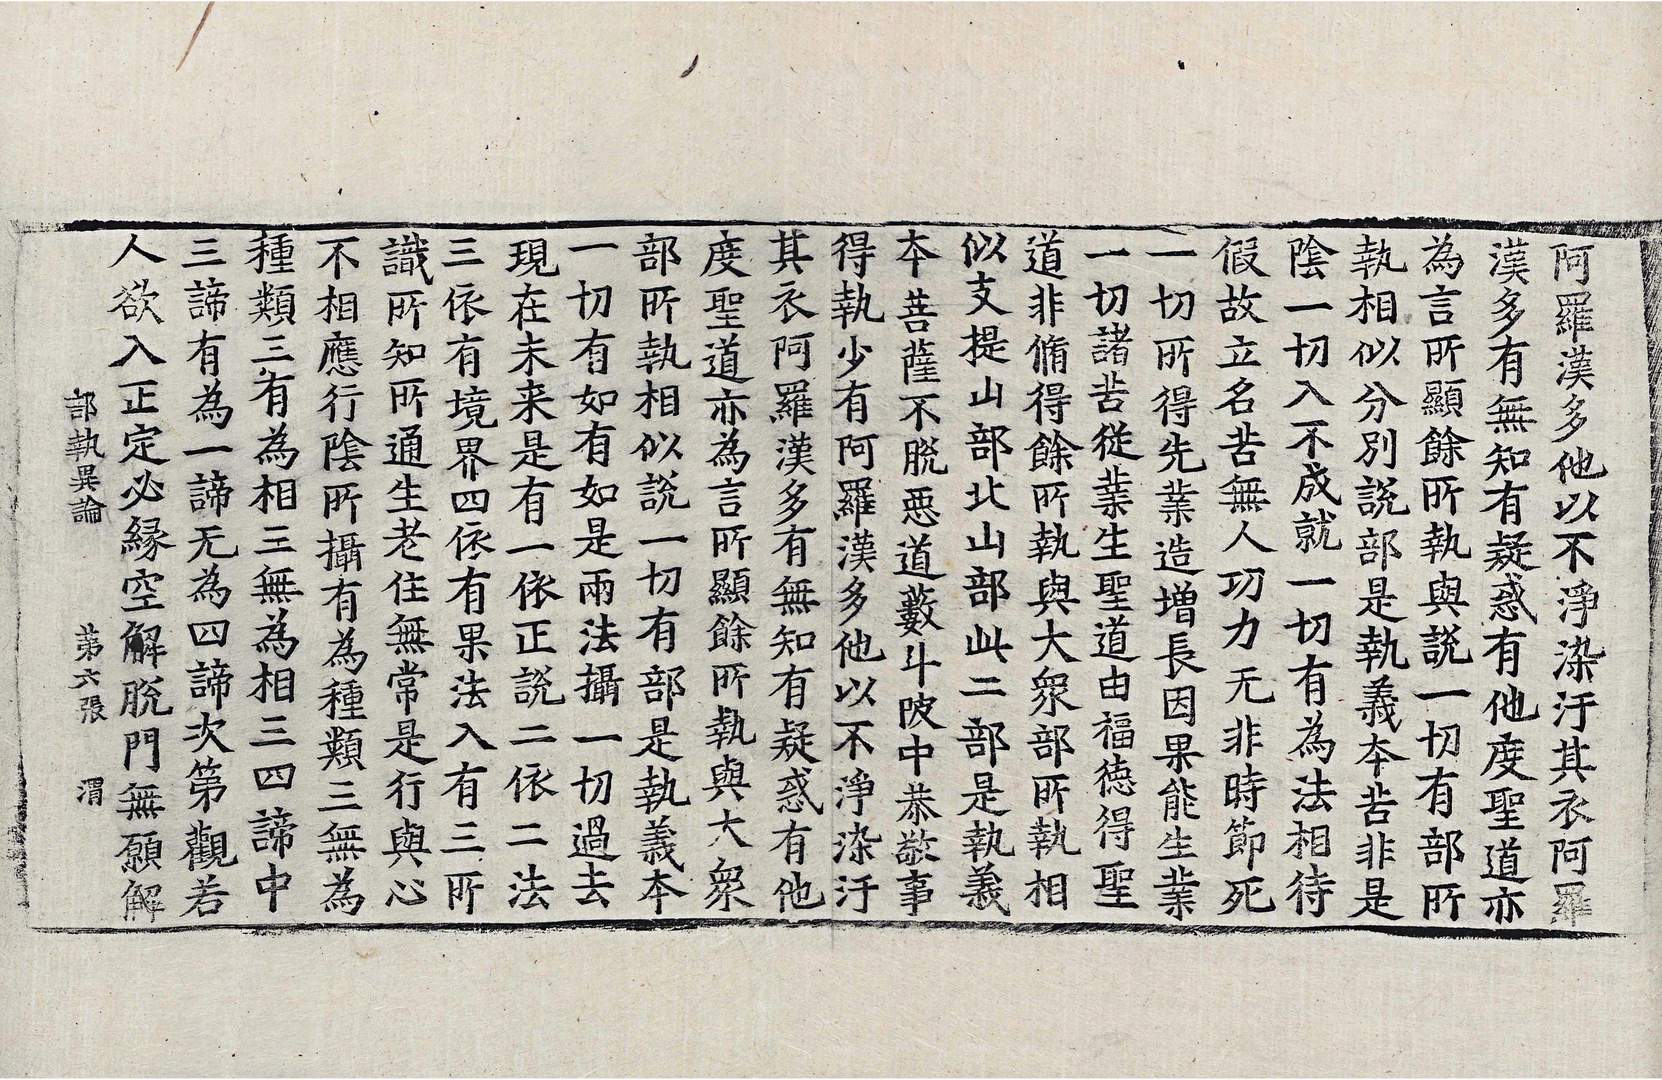 阿羅漢多他以不淨染汙其衣阿羅
漢多有無知有疑惑有他度聖道亦
為言所顯餘所執與說一切有部所
執相似分別說部是執義本苦非是
陰一切入不成就一切有為法相待
假故立名苦無人功力无非時節死
一切所得先業造增長因果能生業
一切諸苦從業生聖道由福德得聖
道非脩得餘所執與大衆部所執相
似支提山部北山部此二部是執義
本菩薩不脫惡道藪斗陂中恭敬事
得執少有阿羅漢多他以不淨染汙
其衣阿羅漢多有無知有疑惑有他
度聖道亦為言所顯餘所執與大衆
部所執相似說一切有部是執義本
一切有如有如是兩法攝一切過去
現在未来是有一依正說二依二法
三依有境界四依有果法入有三所
識所知所通生老住無常是行與心
不相應行陰所攝有為種類三無為
種類三有為相三無為相三四諦中
三諦有為一諦无為四諦次第觀若
人欲入正定必縁空解脫門無願解
部執異論 第六張 渭